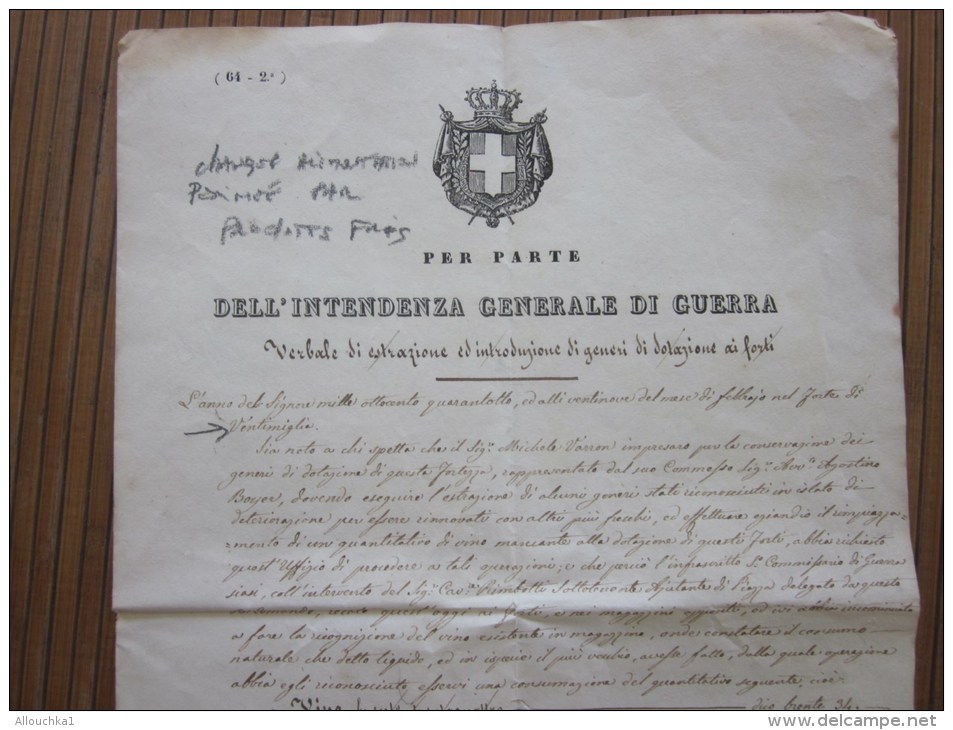 ( 64 - 2.ª )
change alimentation
périmé par
produits frais
PER PARTE
DELL'INTENDENZA GENERALE DI GUERRA
Verbale di estrazione ed introduzione di generi di dotazione ai forti
L'anno del Signore mille ottocento quarantotto, ed alli ventinove del mese di febbrajo nel Forte di
Ventimiglia.
Sia noto a chi spetta che il Sig.r Michele Varron impresaro per la conservazione dei
generi di dotazione di questa Fortezza, rappresentato dal suo Commesso Sig.r Avv.to Agostino
dovendo eseguire l'estrazione di alcuni generi stati riconosciuti in istato di
deteriorazione per essere rinnovati con altri più freschi, ed effettuare eziandio il rimpiazza-
mento di cen quantitativo di vino mancante alla dotazione di questi Forti, abbia richiesto
quest'Uffizio di procedere a tali operazioni, e che perciò l'infrascritto S.r Commissario di Guerra
siasi, coll'intervento del Sig.r Cav.re Rembotti Sottotenente Ajutante di Piazza delegato da questo
Comando, recato quest'oggi ai Forti, e nei magazzini ed ivi abbia incominciato
a fare la ricognizione del vino esistente in magazzino, onde constatare il consumo
naturale che detto liquido, ed in ispecie il più vecchio, avesse fatto, dalla quale operazione
abbia egli riconosciuto esservi una consumazione del quantitativo seguente, cioè:
Vino brente dico brente 34.
Allouchka1
www.delcampe.net